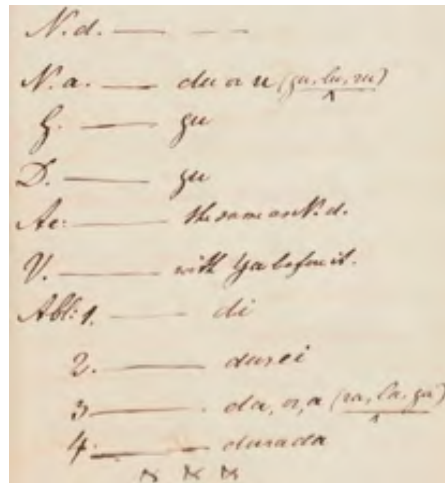 N. d. — — —
N. a. — du or u (gu, lu, ru)
G. — gu
D. — gu
Ac: — the same as N. d.
V. — with Ya before it.
Abl: 1. — di
2. — durei
3 — da, or, a (ra, la, ga)
4. — durada